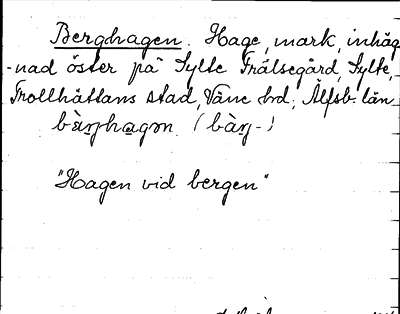 Berghagen. Hage, mark, inhäg
-nad öster på Sylte Frälsegård, Sylte,
Trollhättans stad, Väne hd, Älfsb. län
bàŋhagən (bàŋ-)
"Hagen vid bergen"